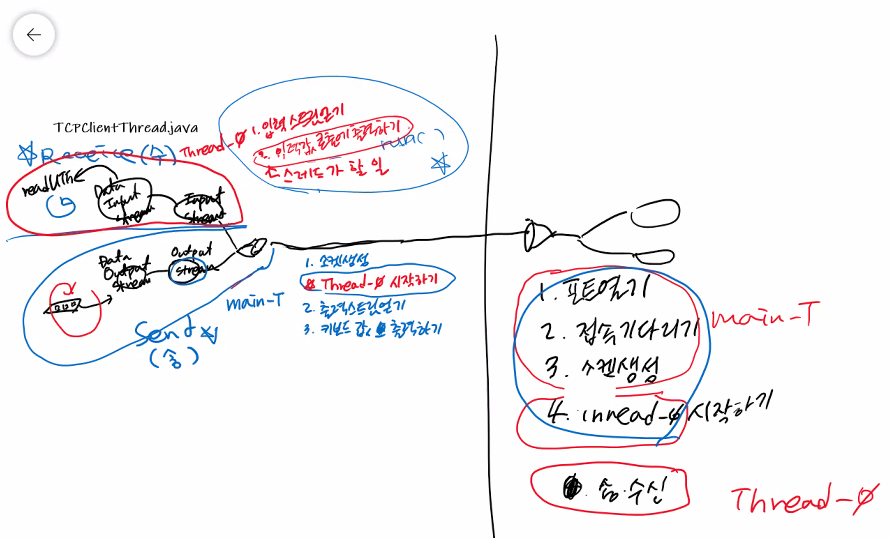 TCPClientThread.java
Receive (수)
Thread-0
1. 입력 스트림열기
2. 입력값, 콘솔에 출력하기
run( )
스레드가 할 일
readUTF
Data
Input
Stream
Input
Stream
Data
Output
Stream
Output
Stream
Send
(송)
main-T
1. 소켓생성
0 Thread-0 시작하기
2. 출력스트림열기
3. 키보드 값, 출력하기
1. 포트열기
2. 접속기다리기
3. 소켓생성
main-T
4. Thread-0 시작하기
송·수신
Thread-0